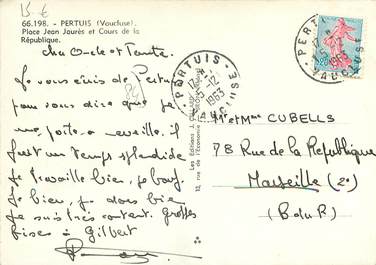 15 €
66.198. - PERTUIS (Vaucluse).
Place Jean Jaurès et Cours de la
République.
cher Oncle et Tante.
Je vous écris de Pertuis
pour vous dire que ja
une poste a merveille. il
fait un temps splendide
Je travaille bien, je bouf
Je bien, je dors bien
Je suis très content. Grosses
bises à Gilbert
84
PERTUIS
17 H
5-12
1963
VAUCLUSE
PERTUIS
17 H
1963
VAUCLUSE
Les Editions J.
rue de l'Economie
Mr et Mme CUBELLS
78 Rue de la Republique
Marseille (2e)
(B du R)